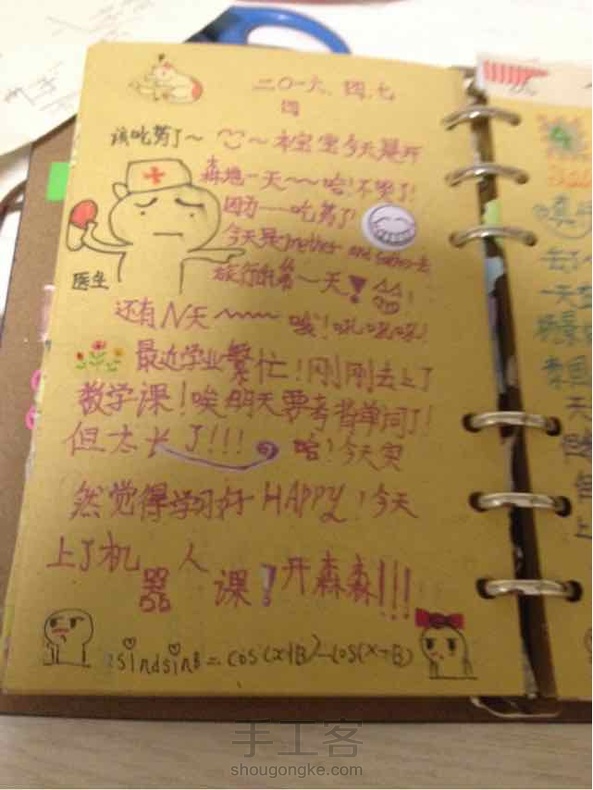 二〇一六、四、七
四
该吃药了～ ～本宝宝今天是开
森地一天～～哈!不哭了!
因为一吃药了!
今天是mother and father去
旅行的第一天!
医生
还有N天～～～ 哦!吼吼吼!
最近学业繁忙!刚刚去上了
数学课!唉明天要考背单词了!
但太长了!!! 哈!今天突
然觉得学习好HAPPY!今天
上了机器人课!开森森!!!
2sindsinB=cos(x+B)-cos(x-B)
手工客
shougongke.com